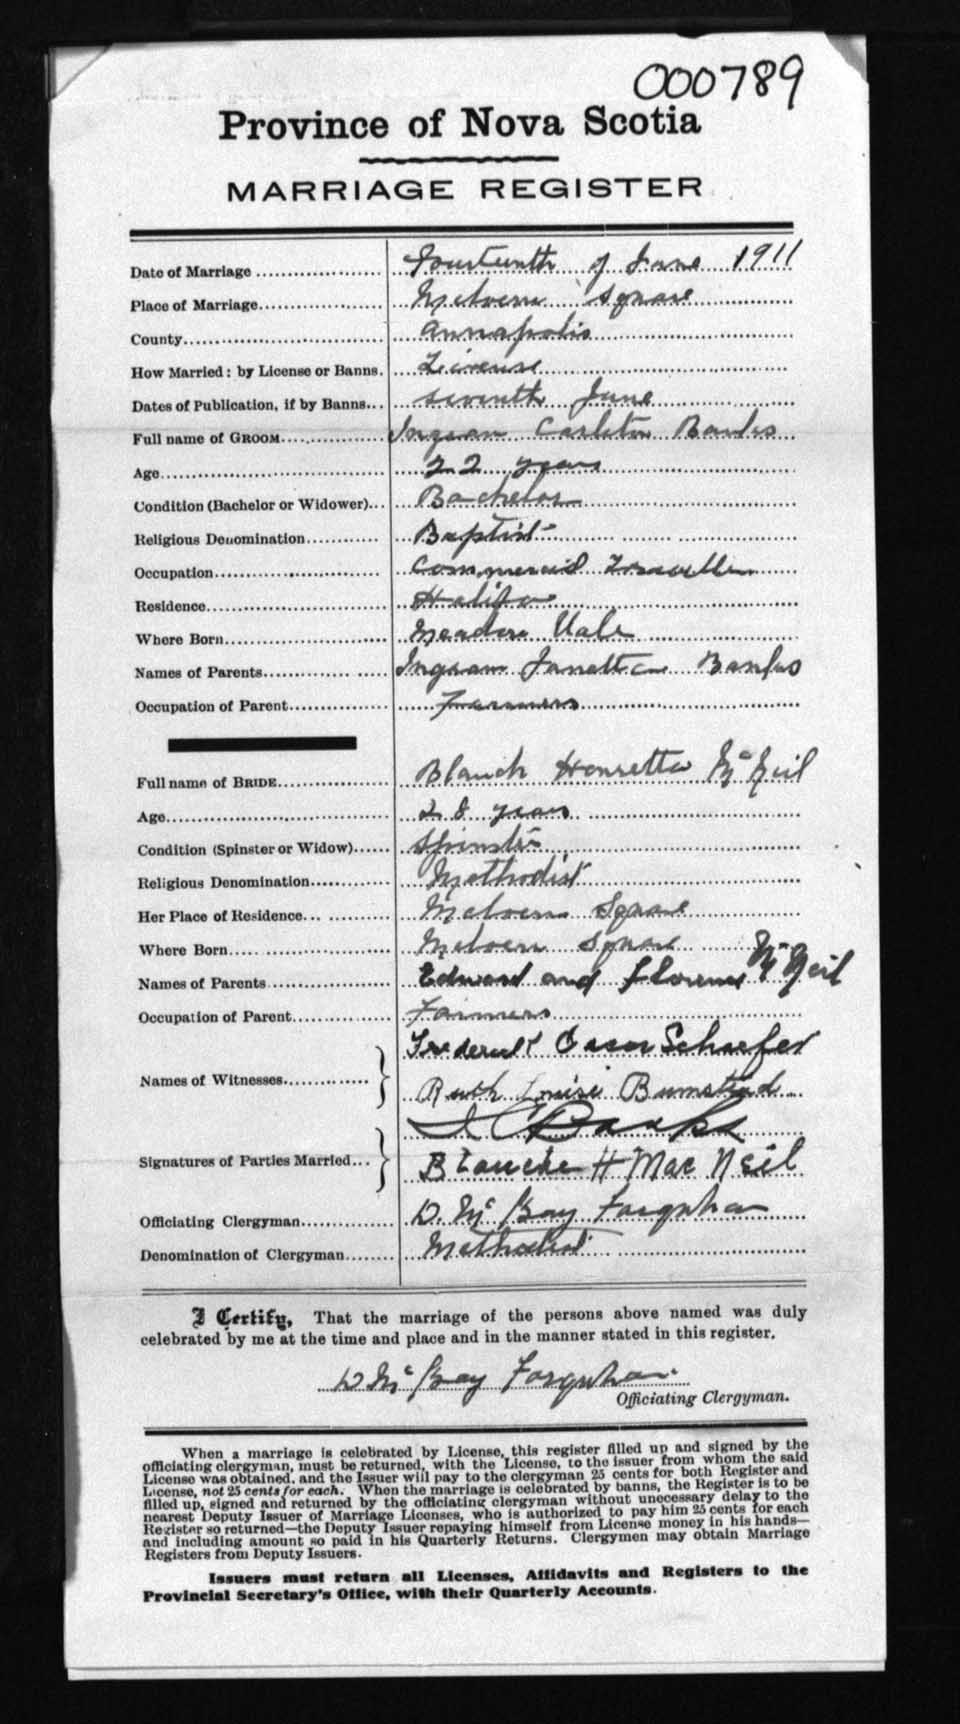 000789
Province of Nova Scotia
MARRIAGE REGISTER
Date of Marriage .................... fourteenth of June 1911
Place of Marriage.................... Melvern Square
County.................... Annapolis
How Married: by License or Banns. License
Dates of Publication, if by Banns... seventh June
Full name of GROOM.................... Ingram Carleton Banks
Age.................... 22 years
Condition (Bachelor or Widower)... Bachelor
Religious Denomination............ Baptist
Occupation.................... Commercial Traveller
Residence.................... Halifax
Where Born.................... Meadow Vale
Names of Parents.................... Ingram Janetta Banks
Occupation of Parent................ Farmers
Full name of BRIDE.................... Blanch Henretta McNeil
Age.................... 28 years
Condition (Spinster or Widow)...... Spinster
Religious Denomination............ Methodist
Her Place of Residence... ............ Melvern Square
Where Born.................... Melvern Square
Names of Parents.................... Edward and Florence McNeil
Occupation of Parent................ Farmers
Names of Witnesses.............. Frederick Oscar Schaefer
Ruth Louise Bumstead
Signatures of Parties Married... I C Banks
Blanche H MacNeil
Officiating Clergyman.............. D. Mc Gay Farquhar
Denomination of Clergyman........ Methodist
I Certify, That the marriage of the persons above named was duly
celebrated by me at the time and place and in the manner stated in this register.
D Mc Gay Farquhar
Officiating Clergyman.
When a marriage is celebrated by License, this register filled up and signed by the
officiating clergyman, must be returned, with the License, to the issuer from whom the said
License was obtained, and the Issuer will pay to the clergyman 25 cents for both Register and
License, not 25 cents for each. When the marriage is celebrated by banns, the Register is to be
filled up, signed and returned by the officiating clergyman without unecessary delay to the
nearest Deputy Issuer of Marriage Licenses, who is authorized to pay him 25 cents for each
Register so returned—the Deputy Issuer repaying himself from License money in his hands—
and including amount so paid in his Quarterly Returns. Clergymen may obtain Marriage
Registers from Deputy Issuers.
Issuers must return all Licenses, Affidavits and Registers to the
Provincial Secretary's Office, with their Quarterly Accounts.